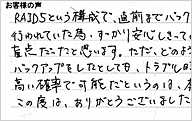 お客様の声
RAID5という構成で、直前までバック
行われていた為、すっかり安心しきって
盲点だったと思います。ただ、どのよう
バックアップをしたとしても、トラブル時
高い確率で可能だというのは、本
この度は、ありがとうございました